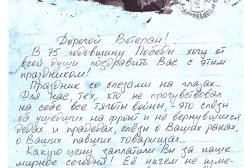 Дорогой Ветеран!
В 75 годовщину Победы хочу от
всей души поздравить Вас с этим
праздником!
Праздник со слезами на глазах...
Для нас, тех, кто не прочувствовал
на себе все тяготы войны, - это слёзы
об ушедших на фронт и не вернувшихся
дедах и прадедах, слёзы о Ваших ранах,
о Ваших павших товарищах...
Какую цену заплатили Вы за наше
мирное сегодня! Её ничем не изме-